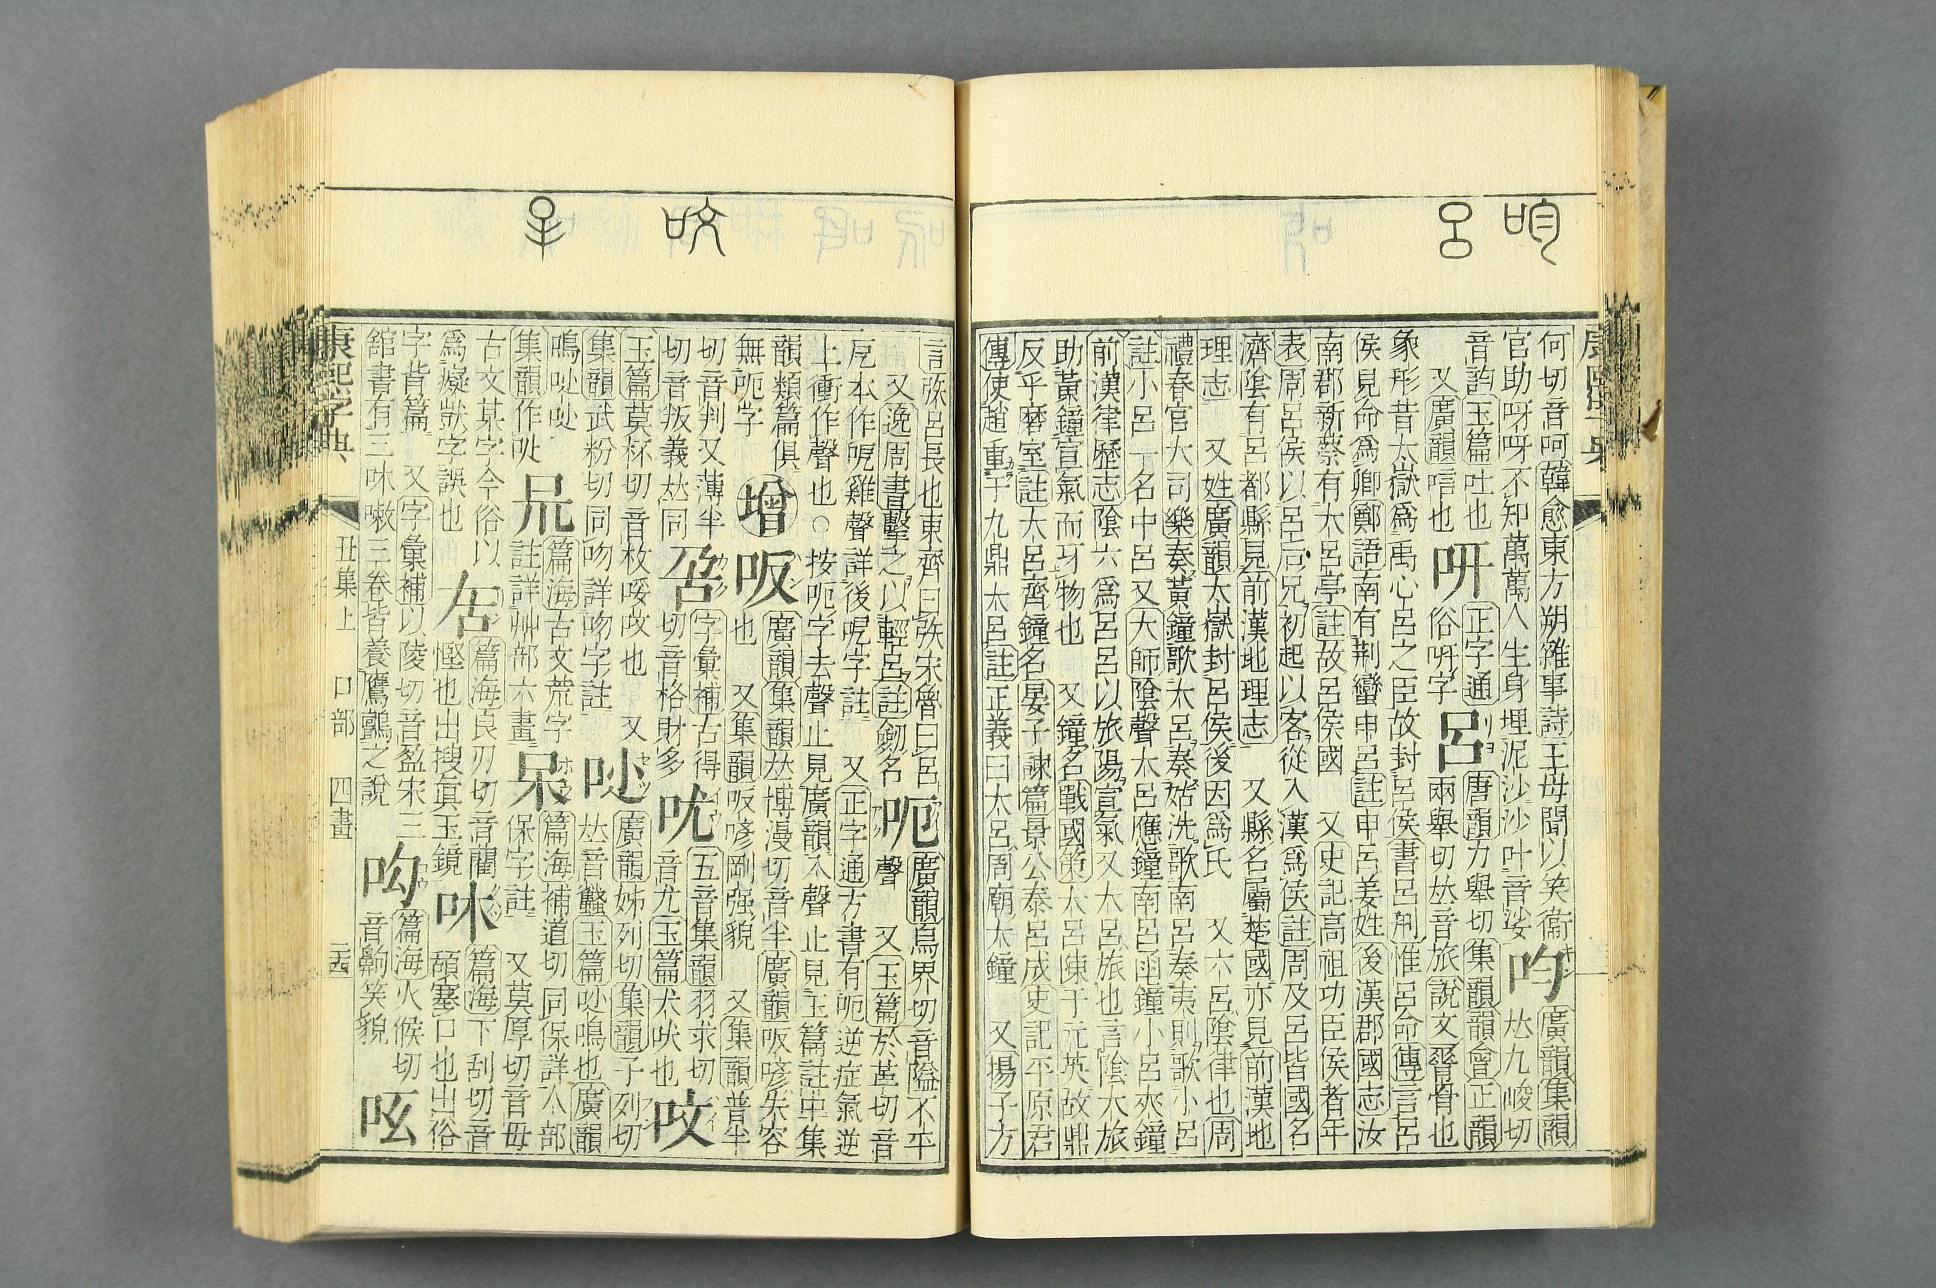 何切音呵韓愈東方朔雜事詩王母聞以笑衞
官助呀呀不知萬萬人生身埋泥沙沙叶音娑
呁廣韻集韻𠀤九峻切
音訽玉篇吐也
又廣韻唁也
呀正字通俗呀字
呂唐韻力舉切集韻韻會正韻
兩舉切𠀤音旅說文膂骨也
象形昔太嶽爲禹心呂之臣故封呂侯書呂刑惟呂命傳言呂
侯見命爲卿鄭語南有荆蠻申呂註申呂姜姓後漢郡國志汝
南郡新蔡有大呂亭註故呂侯國 又史記高祖功臣侯者年
表周呂侯以呂后兄初起以客從入漢爲侯註周及呂皆國名
濟陰有呂都縣見前漢地理志 又縣名屬楚國亦見前漢地
理志 又姓廣韻太嶽封呂侯後因爲氏 又六呂陰律也周
禮春官大司樂奏黃鐘歌大呂奏姑洗歌南呂奏夷則歌小呂
註小呂一名中呂又大師陰聲大呂應鐘南呂函鐘小呂夾鐘
前漢律歷志陰六爲呂呂以旅陽宣氣又大呂旅也言陰大旅
助黃鐘宣氣而牙物也 又鐘名戰國策大呂練于元英故鼎
反乎磨室註大呂齊鐘名晏子諫篇景公泰呂成史記平原君
傳使趙重于九鼎大呂註正義曰大呂周廟大鐘 又揚子方
言㢱呂長也東齊曰㢱宋魯曰呂
又逸周書擊之以輕呂註劒名
呃廣韻烏界切音隘不平
聲 又玉篇於革切音
戹本作呝雞聲詳後呝字註 又正字通方書有呃逆症氣逆
上衝作聲也○按呃字去聲止見廣韻入聲止見玉篇註中集
韻類篇俱
無呃字
增
㕫廣韻集韻𠀤博漫切音半廣韻㕫喭失容
也 又集韻㕫喭剛强貌 又集韻普半
切音判又薄半
切音叛義𠀤同
字彙補古得
切音格財多
吰五音集韻羽求切
音尤玉篇犬吠也
呅
玉篇莫杯切音枚呅也 又
集韻武粉切同吻詳吻字註
𠯗廣韻姊列切集韻子列切
𠀤音蠽玉篇鳴也廣韻
鳴
集韻作
篇海古文荒字
註詳艸部六畫
呆篇海補道切同保詳人部
保字註 又莫厚切音母
古文某字今俗以
爲癡獃字誤也
篇海良刃切音藺
慳也出搜眞玉鏡
篇海下刮切音
頡塞口也出俗
字背篇 又字彙補以陵切音盈宋三
舘書有三味㗜三卷皆養鷹鸇之說
呴篇海火候切
音齁笑貌
呟
康熙字典
丑集上 口部 四畫